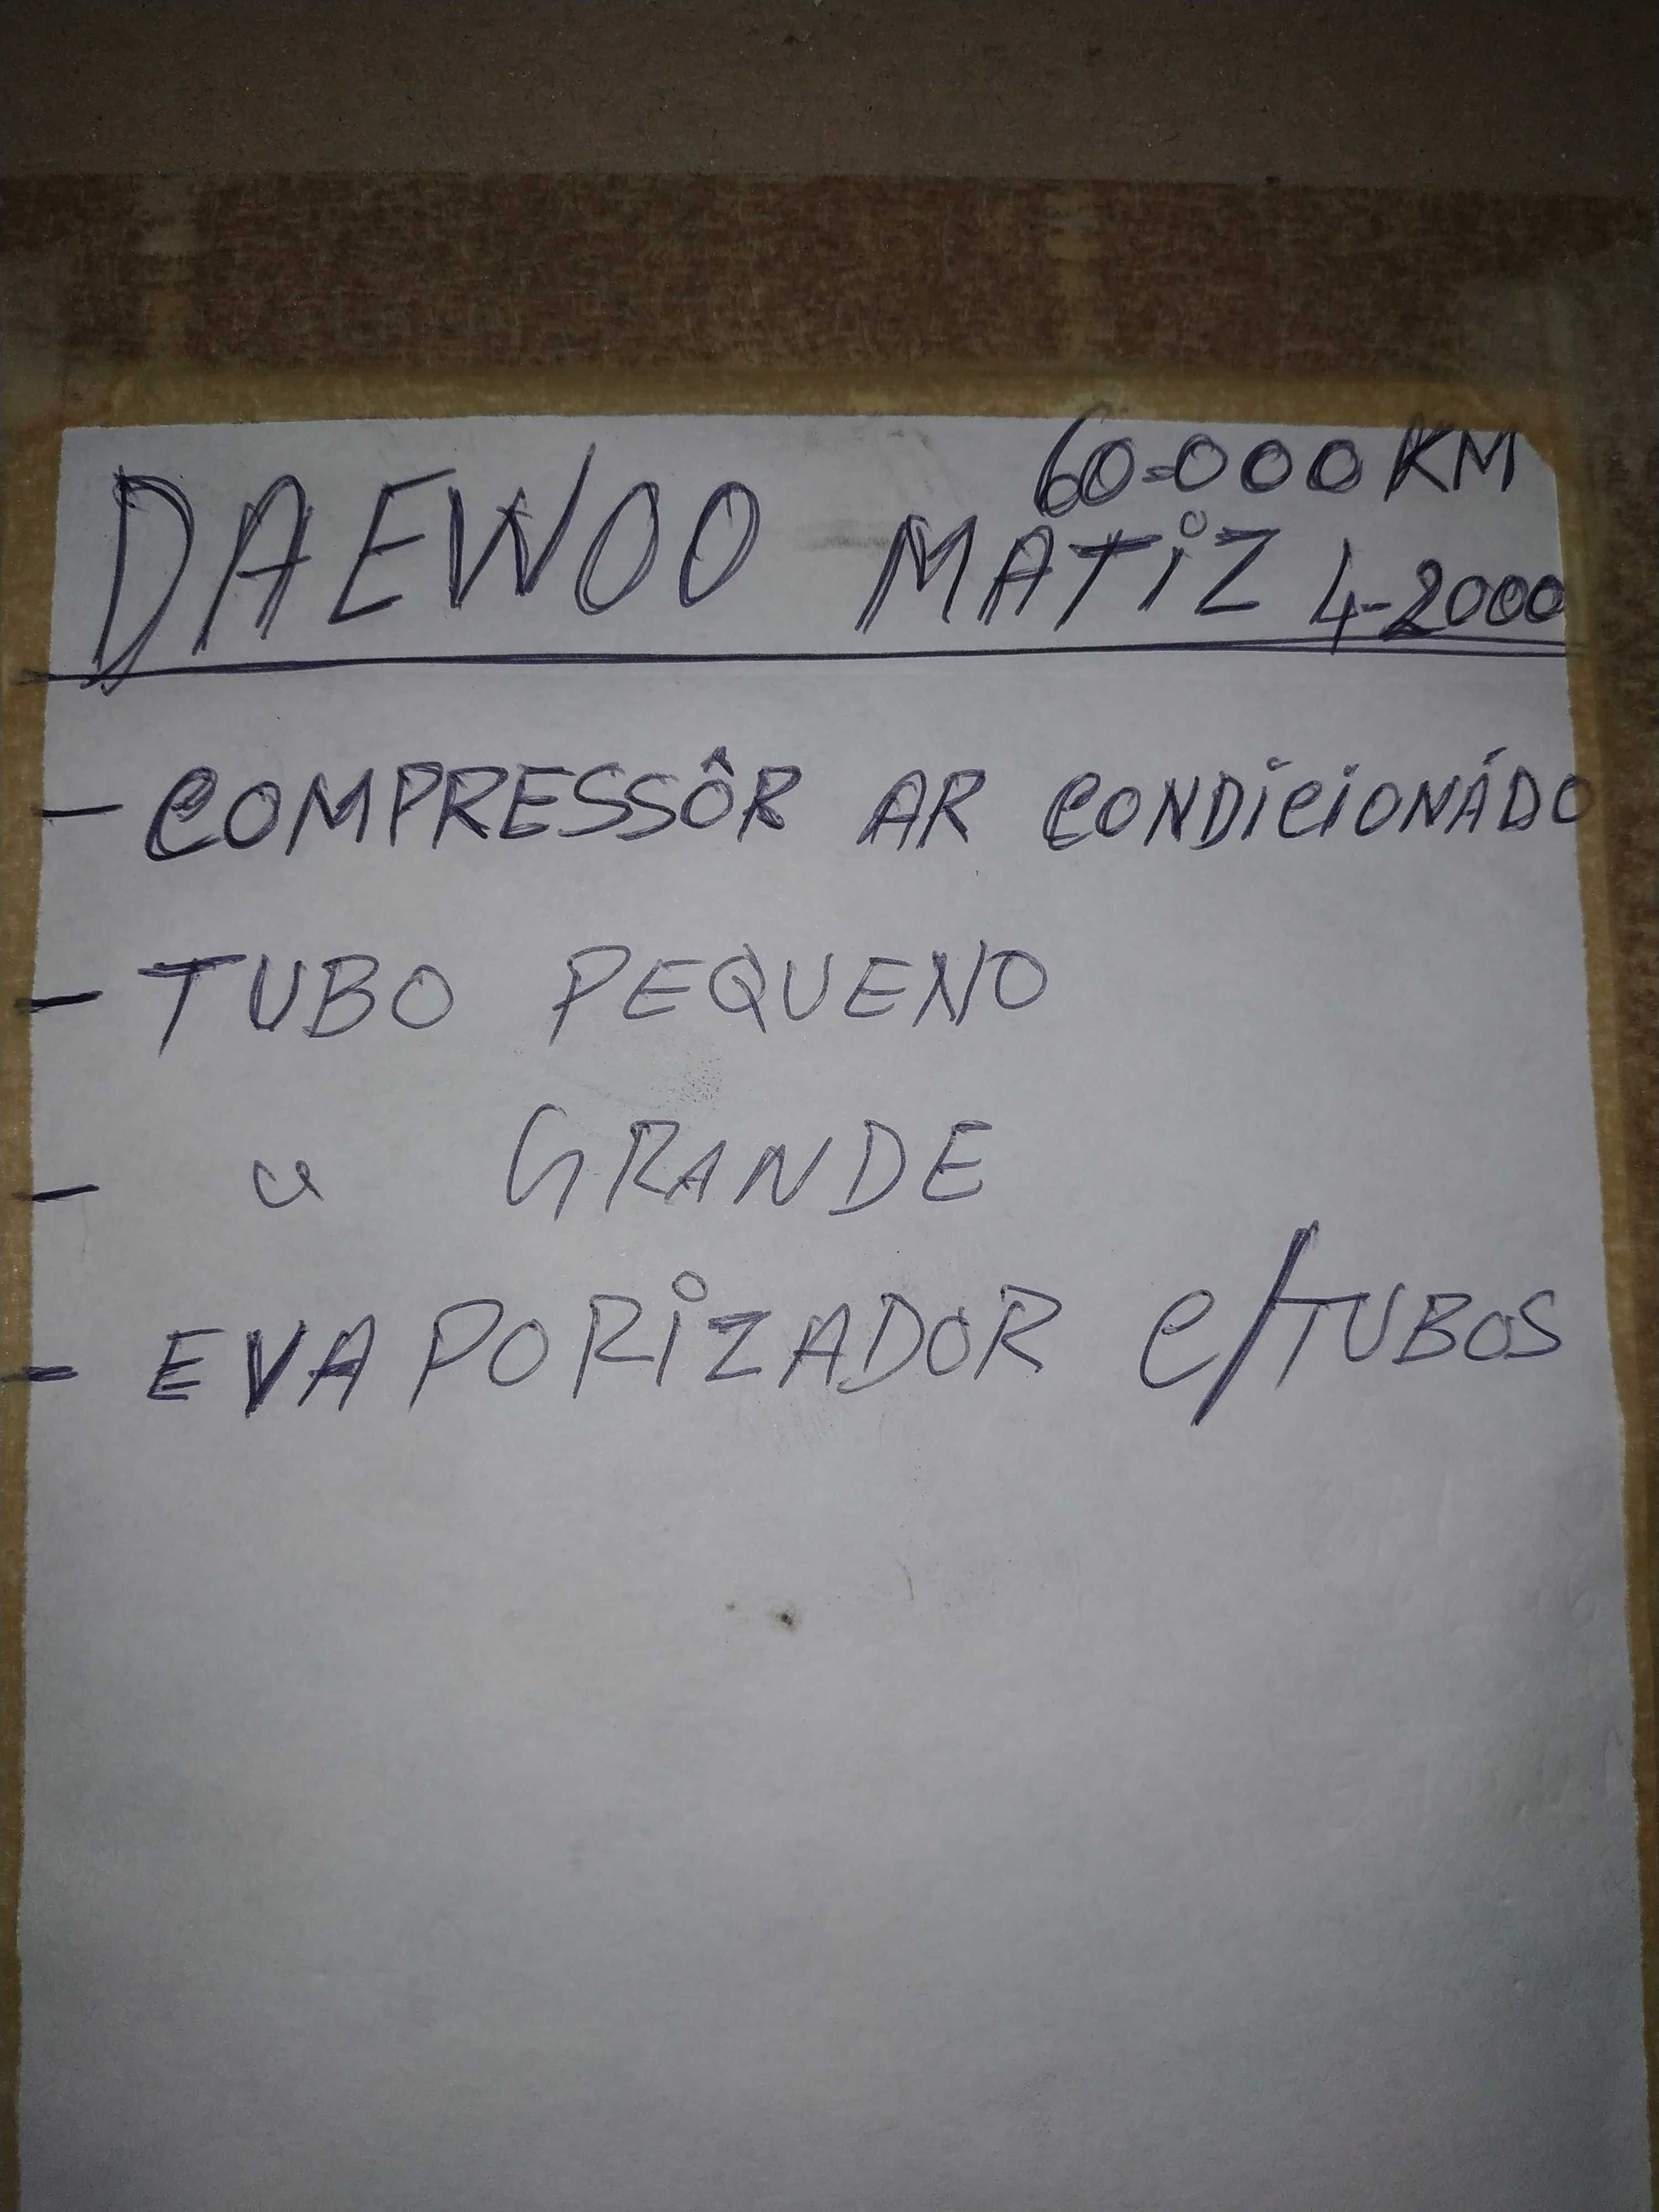 60.000 KM
DAEWOO MATIZ 4-2000
- COMPRESSÔR AR CONDICIONÁDO
- TUBO PEQUENO
- " GRANDE
- EVAPORIZADOR C/TUBOS